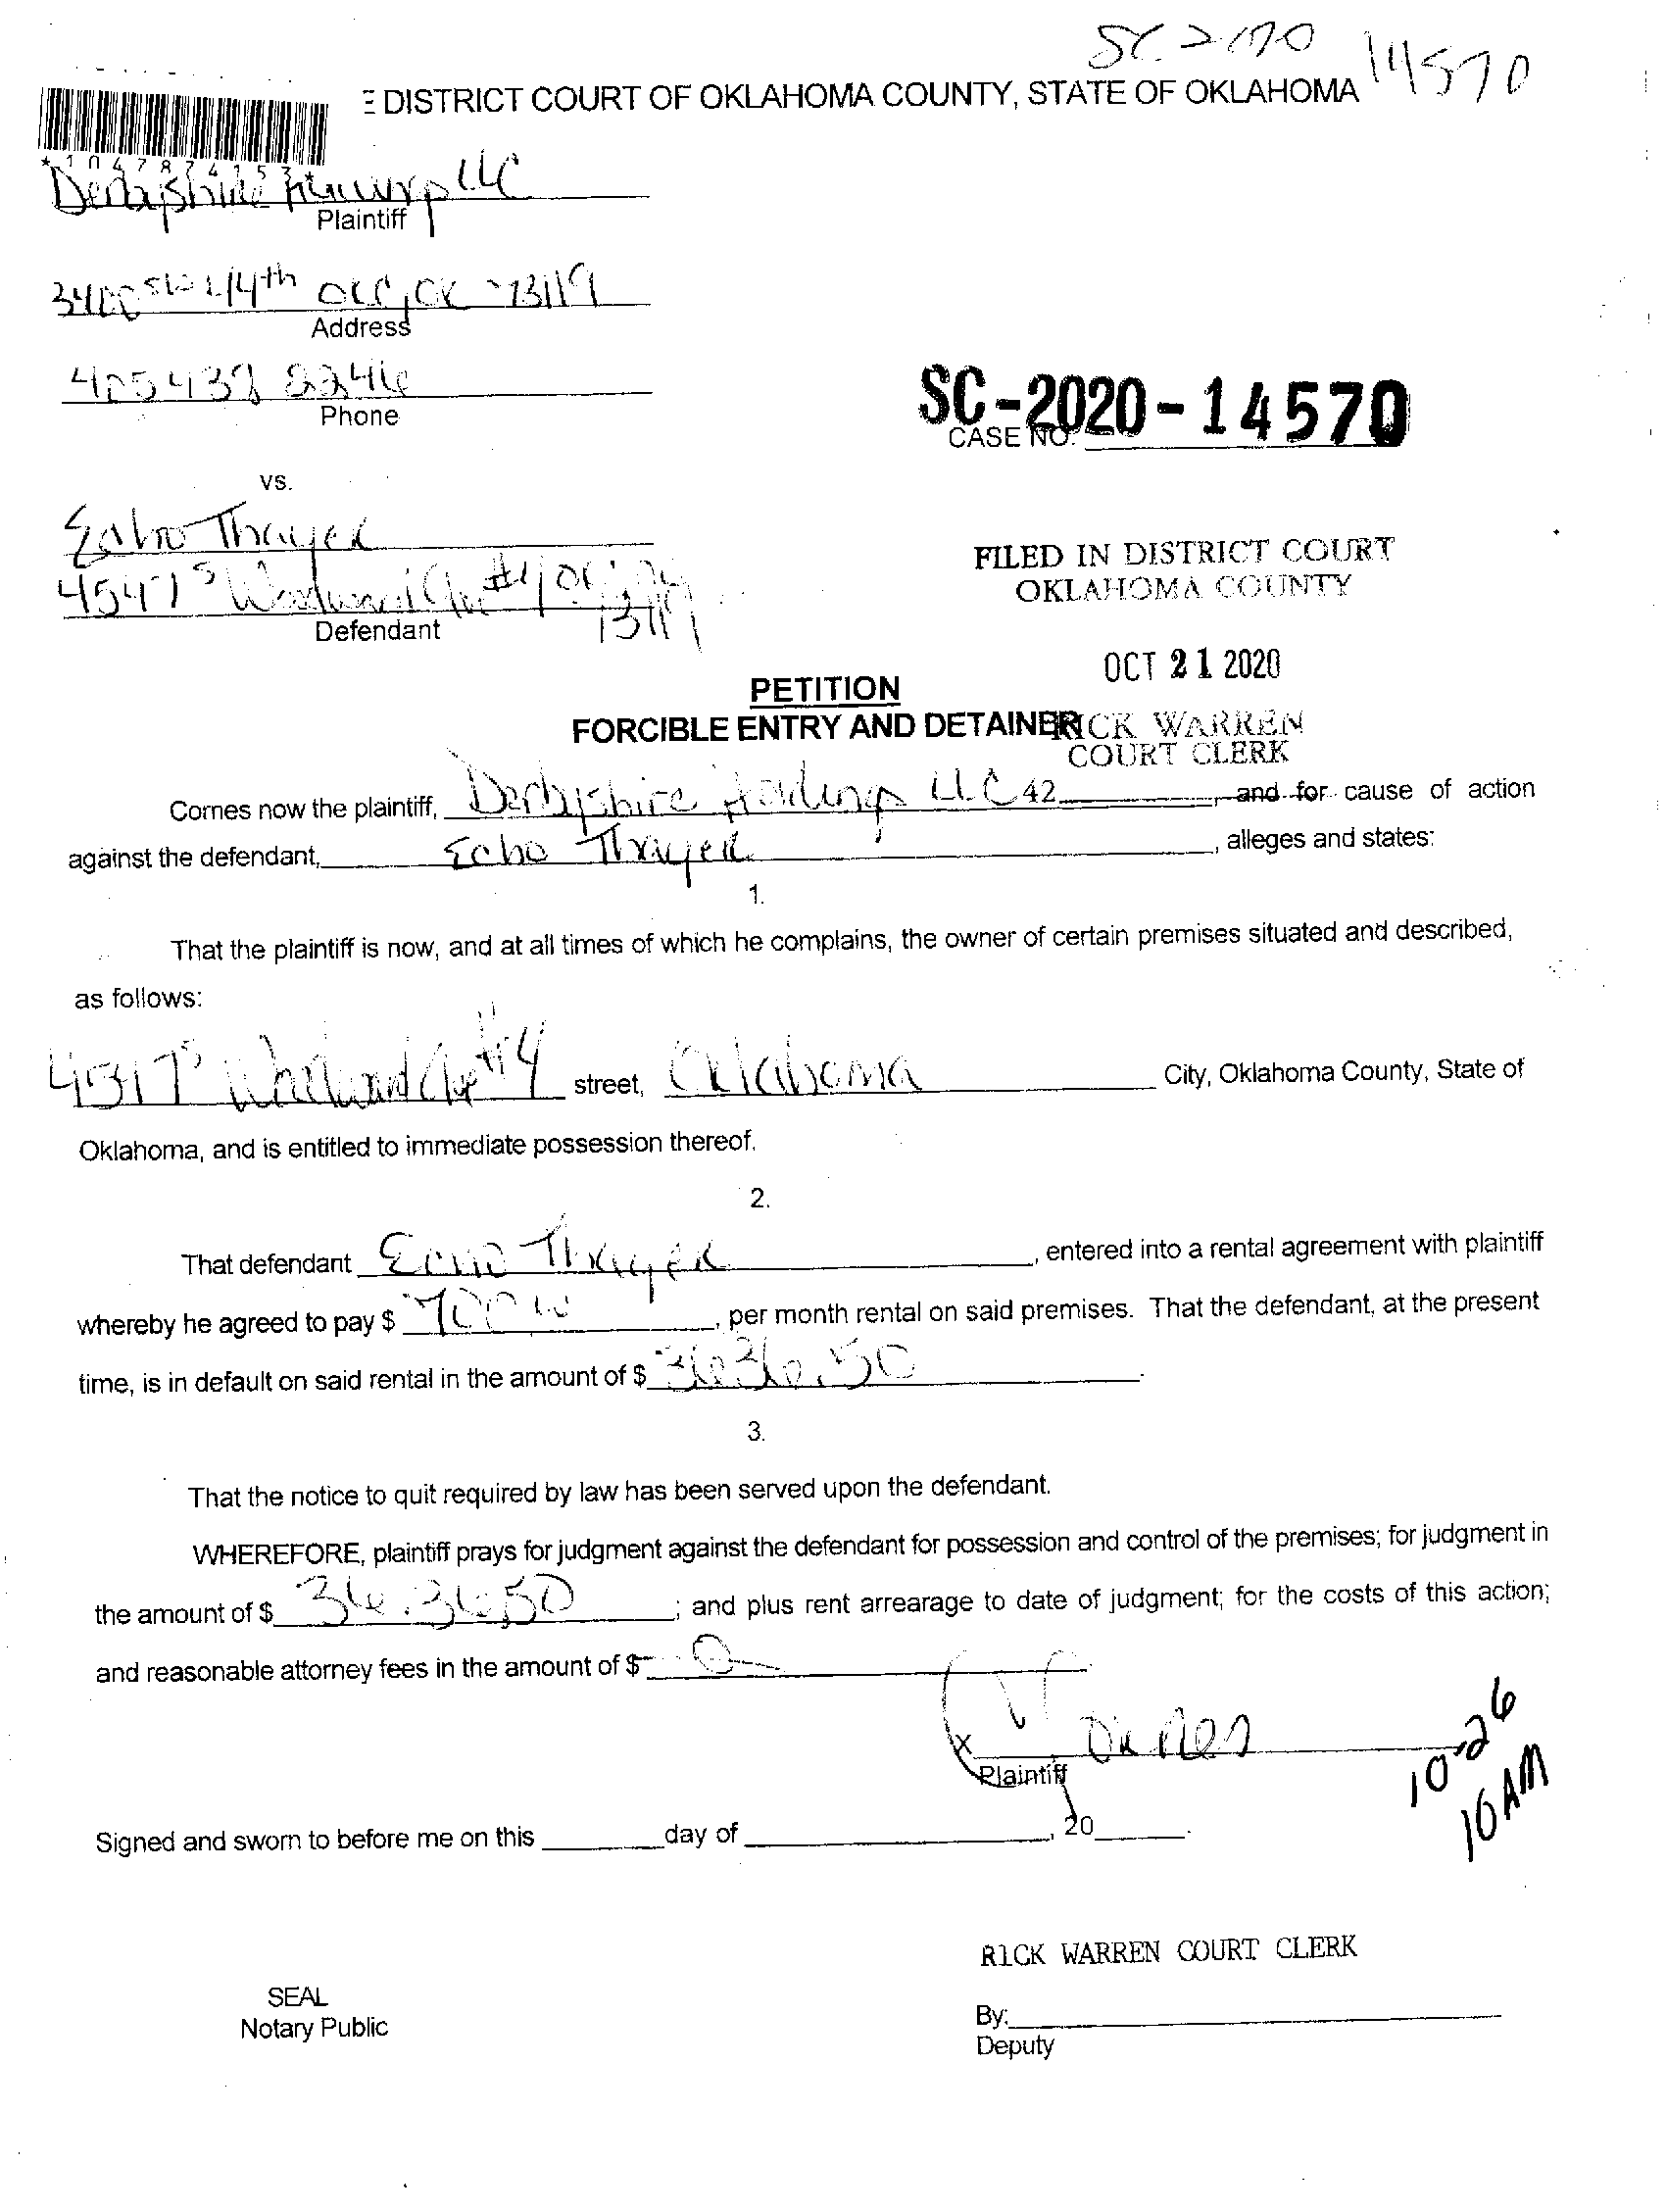 SC 2020 14570
E DISTRICT COURT OF OKLAHOMA COUNTY, STATE OF OKLAHOMA
*1047874153*
Derbyshire LLC
Plaintiff
3400 SW 44th OKC, OK 73119
Address
405 438 2246
Phone
SC-2020-14570
CASE NO.
vs.
Echo Thayer
S Woodward Ave #4 OKC 73119
Defendant
FILED IN DISTRICT COURT
OKLAHOMA COUNTY
OCT 21 2020
RICK WARREN
COURT CLERK
PETITION
FORCIBLE ENTRY AND DETAINER
Comes now the plaintiff, Derbyshire Holdings LLC 42, and for cause of action
against the defendant, Echo Thayer, alleges and states:
1.
That the plaintiff is now, and at all times of which he complains, the owner of certain premises situated and described,
as follows:
S Woodward Ave #4 street, Oklahoma City, Oklahoma County, State of
Oklahoma, and is entitled to immediate possession thereof.
2.
That defendant Echo Thayer, entered into a rental agreement with plaintiff
whereby he agreed to pay $ 700 00, per month rental on said premises. That the defendant, at the present
time, is in default on said rental in the amount of $ 3636.50.
3.
That the notice to quit required by law has been served upon the defendant.
WHEREFORE, plaintiff prays for judgment against the defendant for possession and control of the premises; for judgment in
the amount of $ 3636.50; and plus rent arrearage to date of judgment; for the costs of this action;
and reasonable attorney fees in the amount of $ 0
X
Plaintiff
10-26
10 AM
Signed and sworn to before me on this ______ day of ______, 20____.
RICK WARREN COURT CLERK
SEAL
Notary Public
By:
Deputy